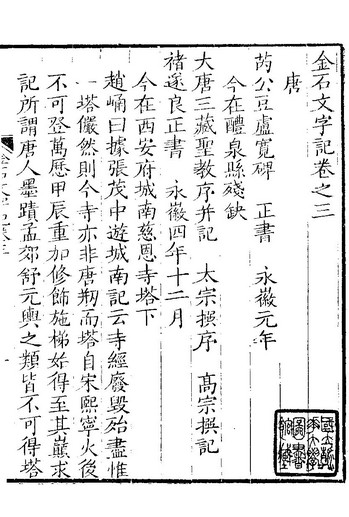 金石文字記卷之三
唐
芮公豆盧寬碑 正書 永徽元年
今在醴泉縣殘缺
大唐三藏聖教序并記 太宗撰序 高宗撰記
褚遂良正書 永徽四年十二月
今在西安府城南慈恩寺塔下
趙崡曰據張茂中遊城南記云寺經廢毀殆盡惟
一塔儼然則今寺亦非唐刱而塔自宋熙寧火後
不可登萬歷甲辰重加修飾施梯始得至其巔求
記所謂唐人墨蹟孟郊舒元輿之類皆不可得塔